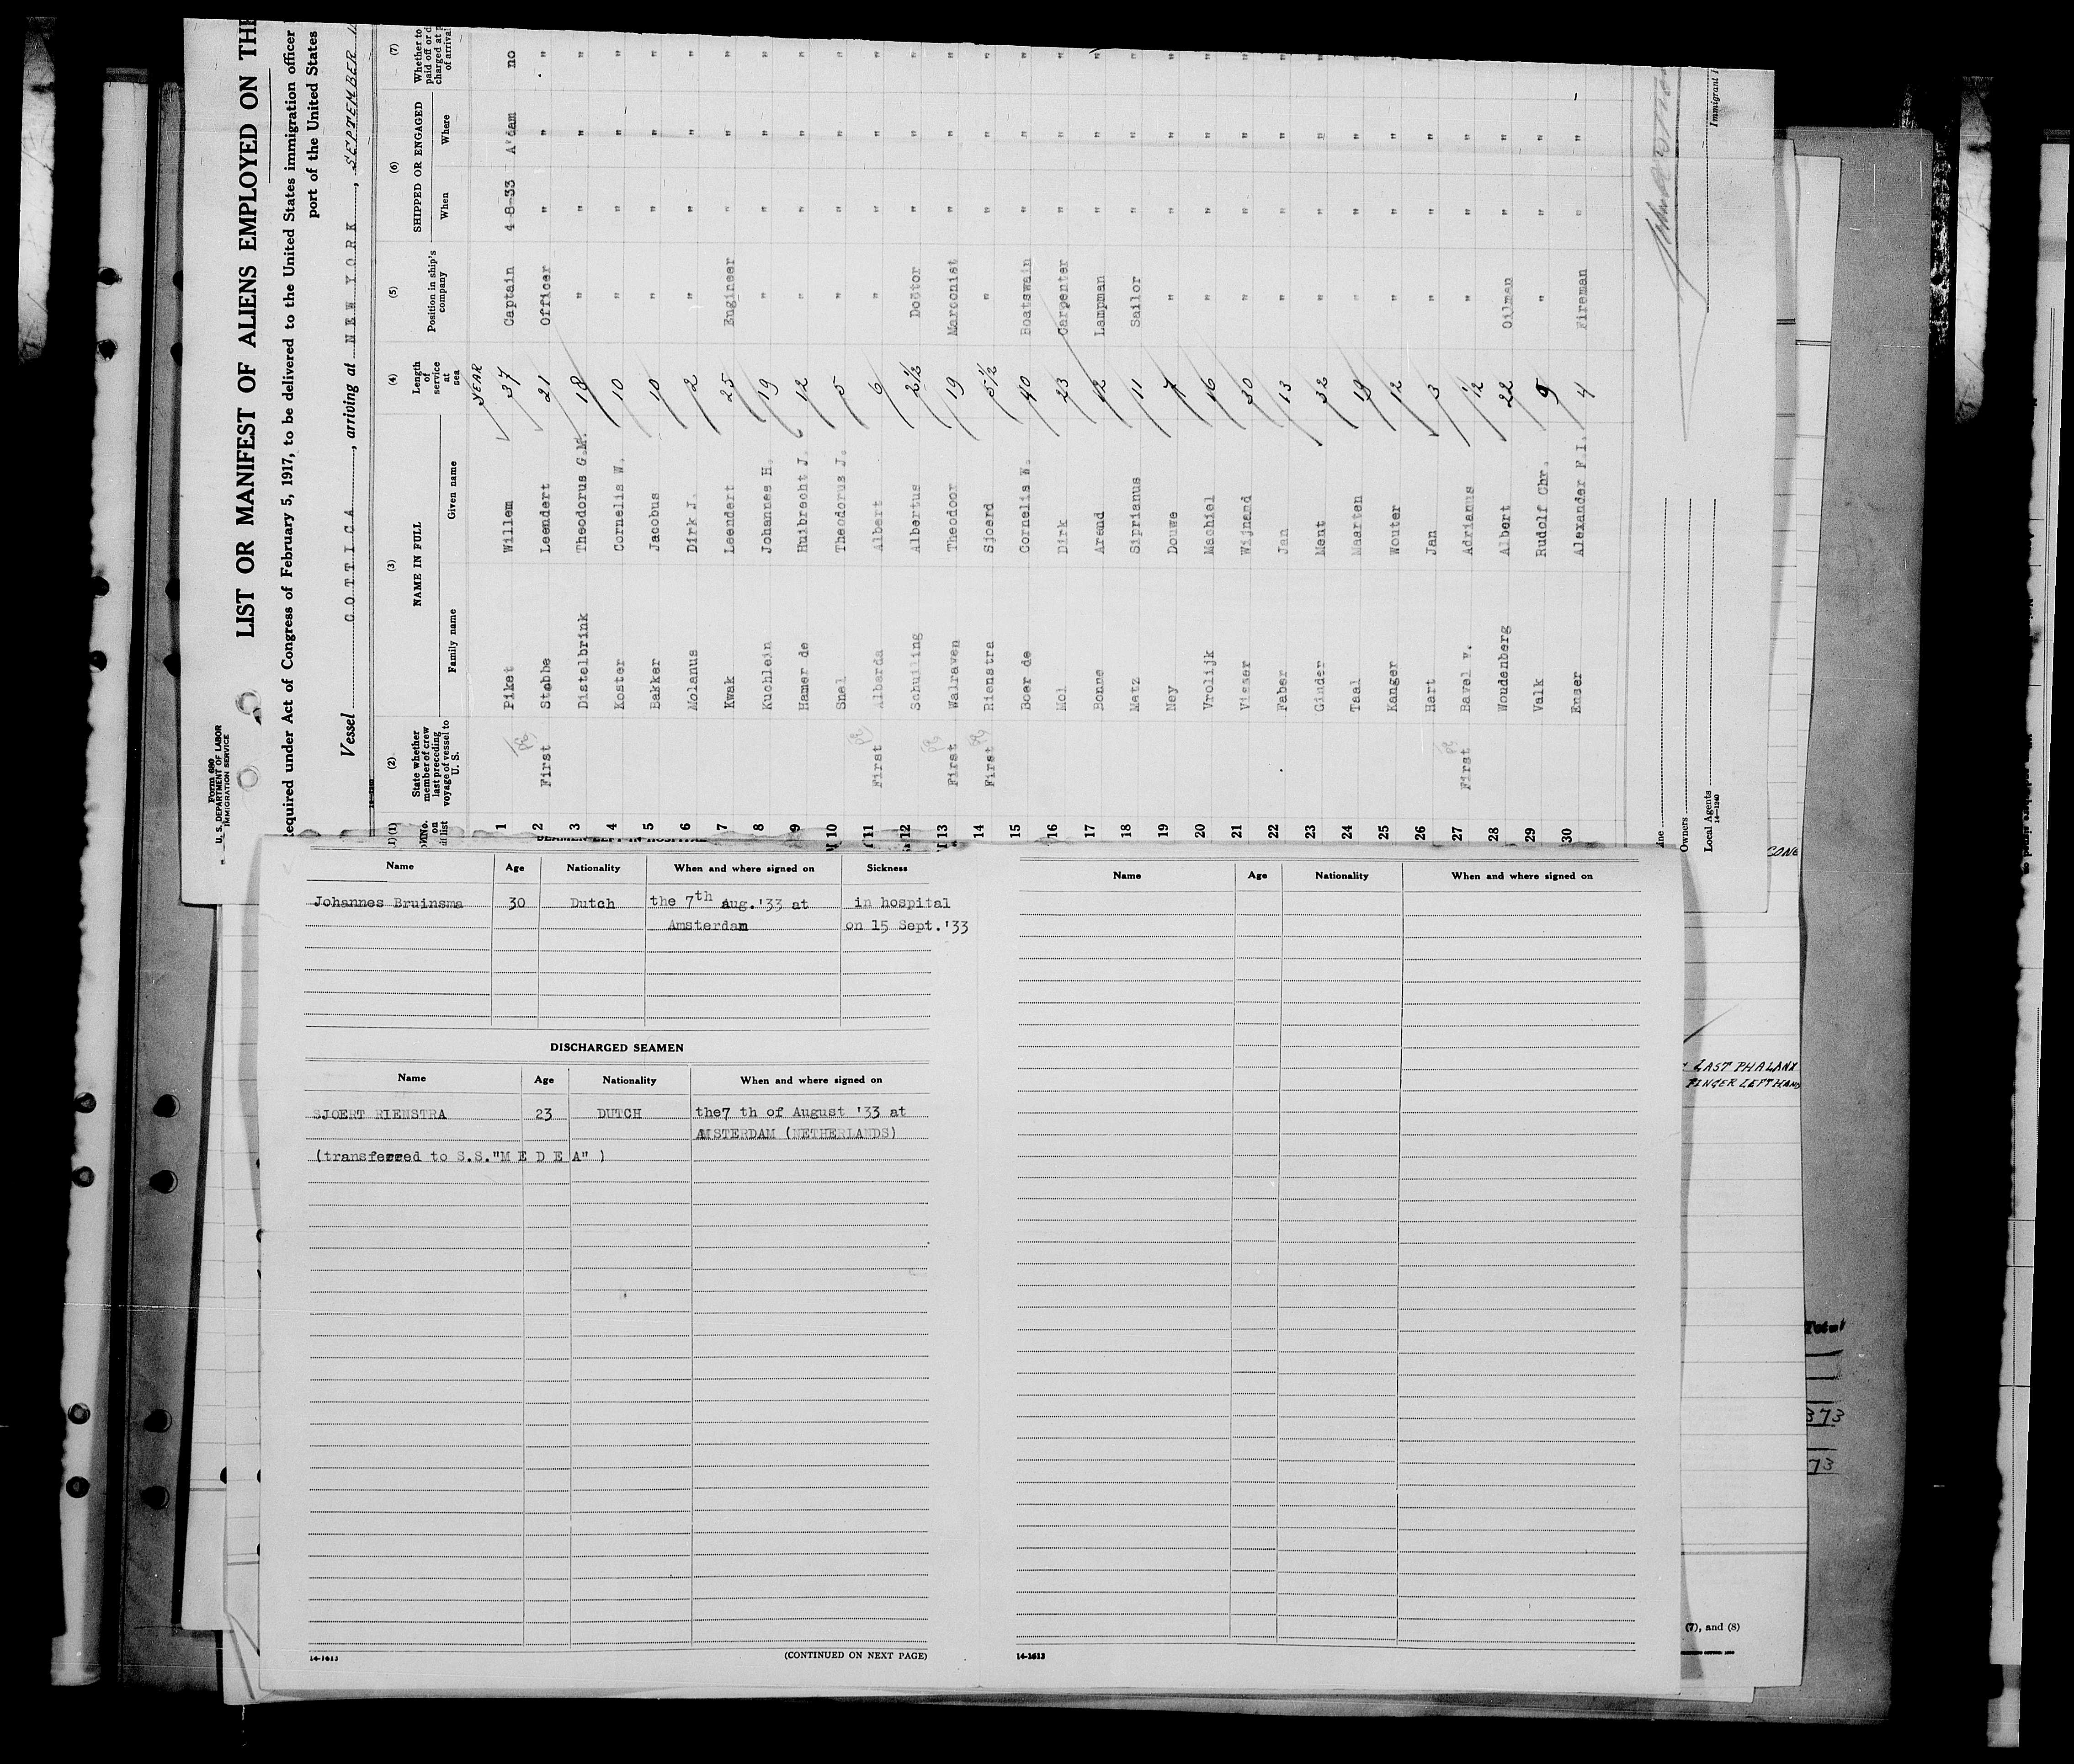 Form 680
U. S. DEPARTMENT OF LABOR
IMMIGRATION SERVICE
LIST OR MANIFEST OF ALIENS EMPLOYED ON THE
Required under Act of Congress of February 5, 1917, to be delivered to the United States immigration officer
port of the United States
Vessel COTTICA, arriving at NEW YORK, SEPTEMBER
(1) (2) (3) (4) (5) (6) (7)
No. on list
State whether member of crew last preceding voyage of vessel to U. S.
NAME IN FULL
Family name Given name
Length of service at sea
Position in ship's company
SHIPPED OR ENGAGED
When Where
Whether to paid off or charged at of arrival
YEAR
1 Piket Willem 37 Captain 4-8-33 A'dam no
2 First Stobbe Leendert 21 Officer " " "
3 Distelbrink Theodorus G.M. 18 " " " "
4 Koster Cornelis W. 10 " " " "
5 Bakker Jacobus 10 " " " "
6 Molanus Dirk J. 2 " " " "
7 Kwak Leendert 25 Engineer " " "
8 Kuchlein Johannes H. 19 " " " "
9 Hamer de Huibrecht J. 12 " " " "
10 Snel Theodorus J. 5 " " " "
11 First Albarda Albert 6 " " " "
12 Schuiling Albertus 2 1/2 Doctor " " "
13 First Walraven Theodoor 19 Marconist " " "
14 First Rienstra Sjoerd 5 1/2 " " " "
15 Boer de Cornelis W. 40 Boatswain " " "
16 Mol Dirk 23 Carpenter " " "
17 Bonne Arend 12 Lampman " " "
18 Matz Siprianus 11 Sailor " " "
19 Ney Douwe " " " "
20 Vrolijk Machiel 16 " " " "
21 Visser Wijnand 30 " " " "
22 Faber Jan 13 " " " "
23 Ginder Ment 32 " " " "
24 Taal Maarten 19 " " " "
25 Kanger Wouter 12 " " " "
26 Hart Jan 3 " " " "
27 First Bavel v. Adrianus 1/2 " " " "
28 Woudenberg Albert 22 Oilman " " "
29 Valk Rudolf Chr. 9 " " " "
30 Enser Alexander F.I. 4 Fireman " "
Owners
Local Agents
14-1240
Immigrant
Name Age Nationality When and where signed on Sickness
Johannes Bruinsma 30 Dutch the 7th Aug.'33 at in hospital
Amsterdam on 15 Sept.'33
DISCHARGED SEAMEN
Name Age Nationality When and where signed on
SJOERT RIENSTRA 23 DUTCH the7 th of August '33 at
AMSTERDAM (NETHERLANDS)
(transferred to S.S."M E D E A" )
14-1613
(CONTINUED ON NEXT PAGE)
Name Age Nationality When and where signed on
14-1613
LAST PHALANX
FINGER LEFT HAND
Total
373
73
(7), and (8)